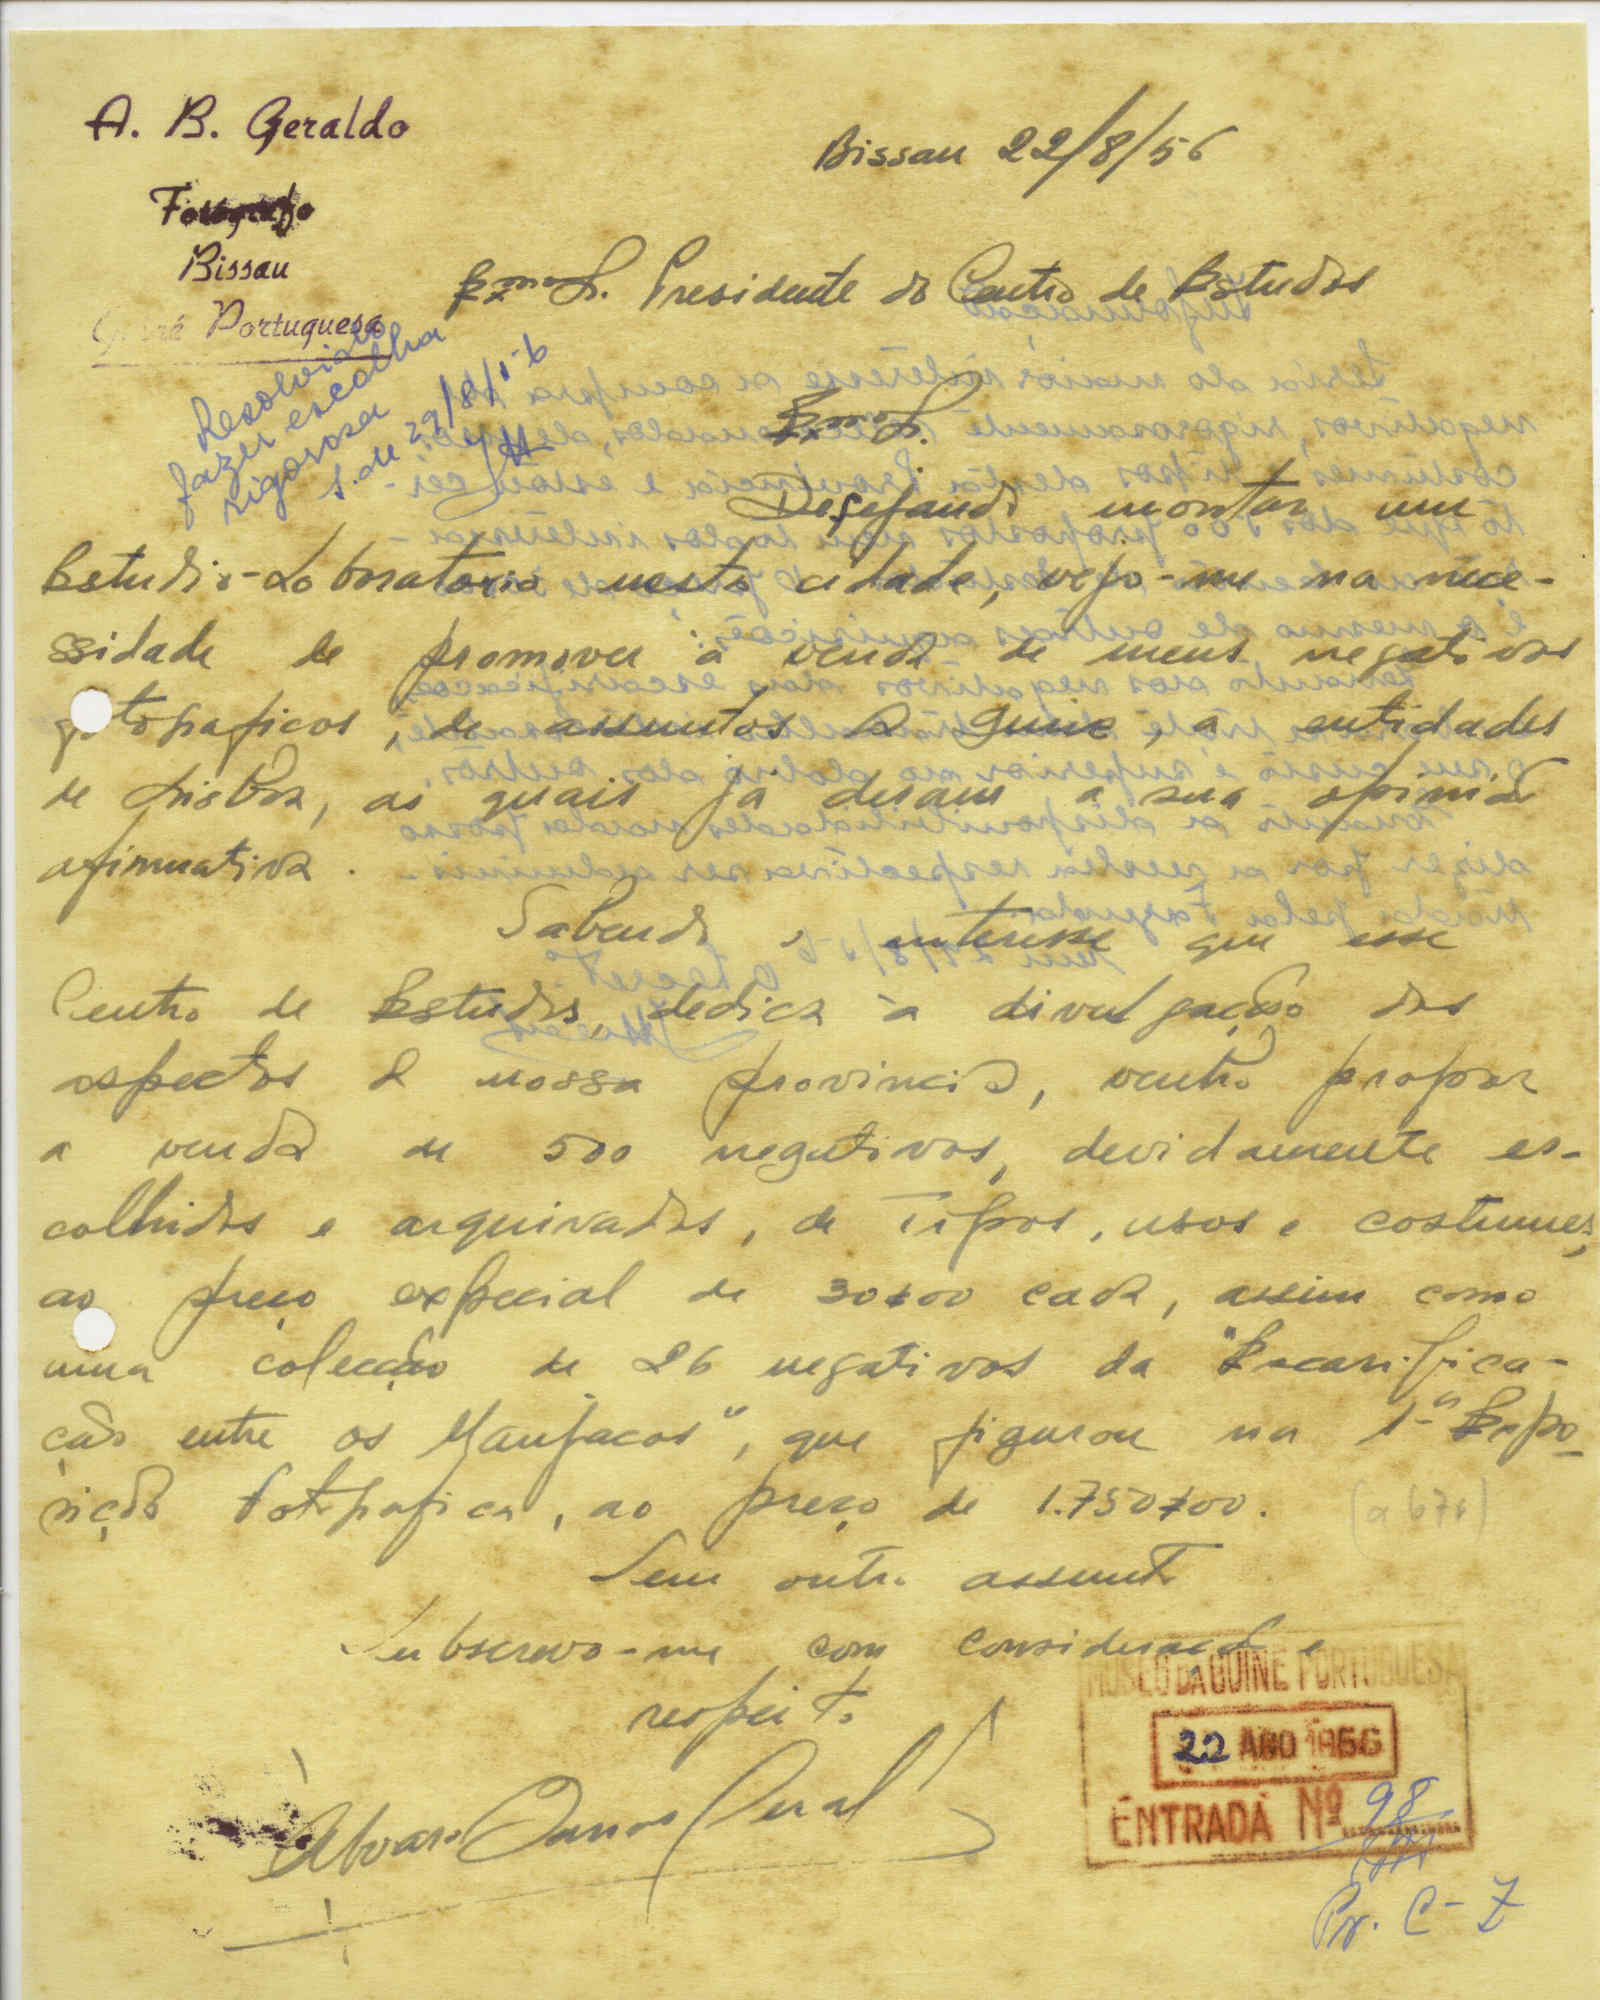 A. B. Geraldo
Fotógrafo
Bissau
Guiné Portuguesa
Bissau 22/8/56
Exmo Sr. Presidente do Centro de Estudos
Resolvido
fazer escolha
rigorosa
S. de 29/8/56
Exmo Sr.
Desejando montar um
Estudio-Laboratorio nesta cidade, vejo-me na nece-
ssidade de promover à venda de meus negativos
fotograficos, de assuntos da Guiné, a entidades
de Lisboa, as quais já deram a sua opinião
afirmativa.
Sabendo o interesse que esse
Centro de Estudos dedica à divulgação dos
aspectos da nossa provincia, venho propor
a venda de 500 negativos, devidamente es-
colhidos e arquivados, de Tipos, usos e costumes,
ao preço especial de 30$00 cada, assim como
uma colecção de 26 negativos da "Escarifica-
ção entre os Manjacos", que figurou na 1ª Expo-
sição Fotografica, ao preço de 1.750$00.
Sem outro assunto
Subscrevo-me com consideração e
respeito
Alvaro Barros Geraldo
MUSEU DA GUINÉ PORTUGUESA
22 AGO 1956
ENTRADA Nº 98
Pr. C-7